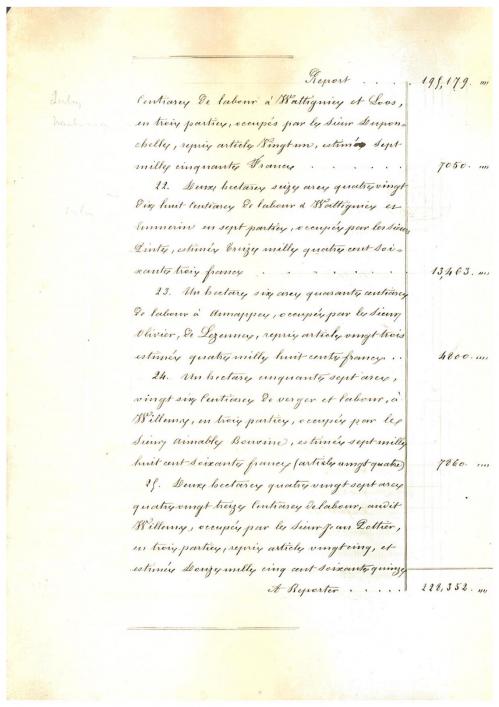 Report . . . . 195,179. "
Centiares de labour à Wattignies et Loos,
en trois parties, occupés par le sieur Dupon-
chelle, repris article Vingt un, estimés sept
mille cinquante Francs . . . . . . . . 7050. "
22. Deux hectares seize ares quatre vingt
dix huit Centiares de labour à Wattignies et
Emmerin en sept parties, occupés par les sieurs
estimés treize mille quatre cent soi-
xante trois francs . . . . . . . . . . 13,463. "
23. Un hectare six ares quarante centiares
de labour à Annappes, occupés par le sieur
Olivier, de Lezennes, repris article vingt trois
estimés quatre mille huit cents francs . . 4800. "
24. Un hectare cinquante sept ares,
vingt six Centiares de verger et labour, à
Willems, en trois parties, occupés par le
sieur Aimable Bouvine, estimés sept mille
huit cent soixante francs (article vingt quatre) 7860. "
25. Deux hectares quatre vingt sept ares
quatre vingt treize Centiares de labour, audit
Willems, occupés par le sieur Jean Pottier,
en trois parties, repris article vingt cinq, et
estimés Douze mille cinq cent soixante quinze
A Reporter . . . . . 228,352. "